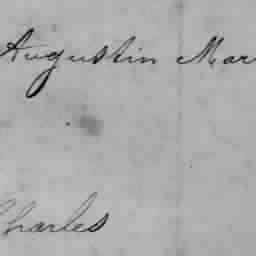 Augustin Mar
Charles